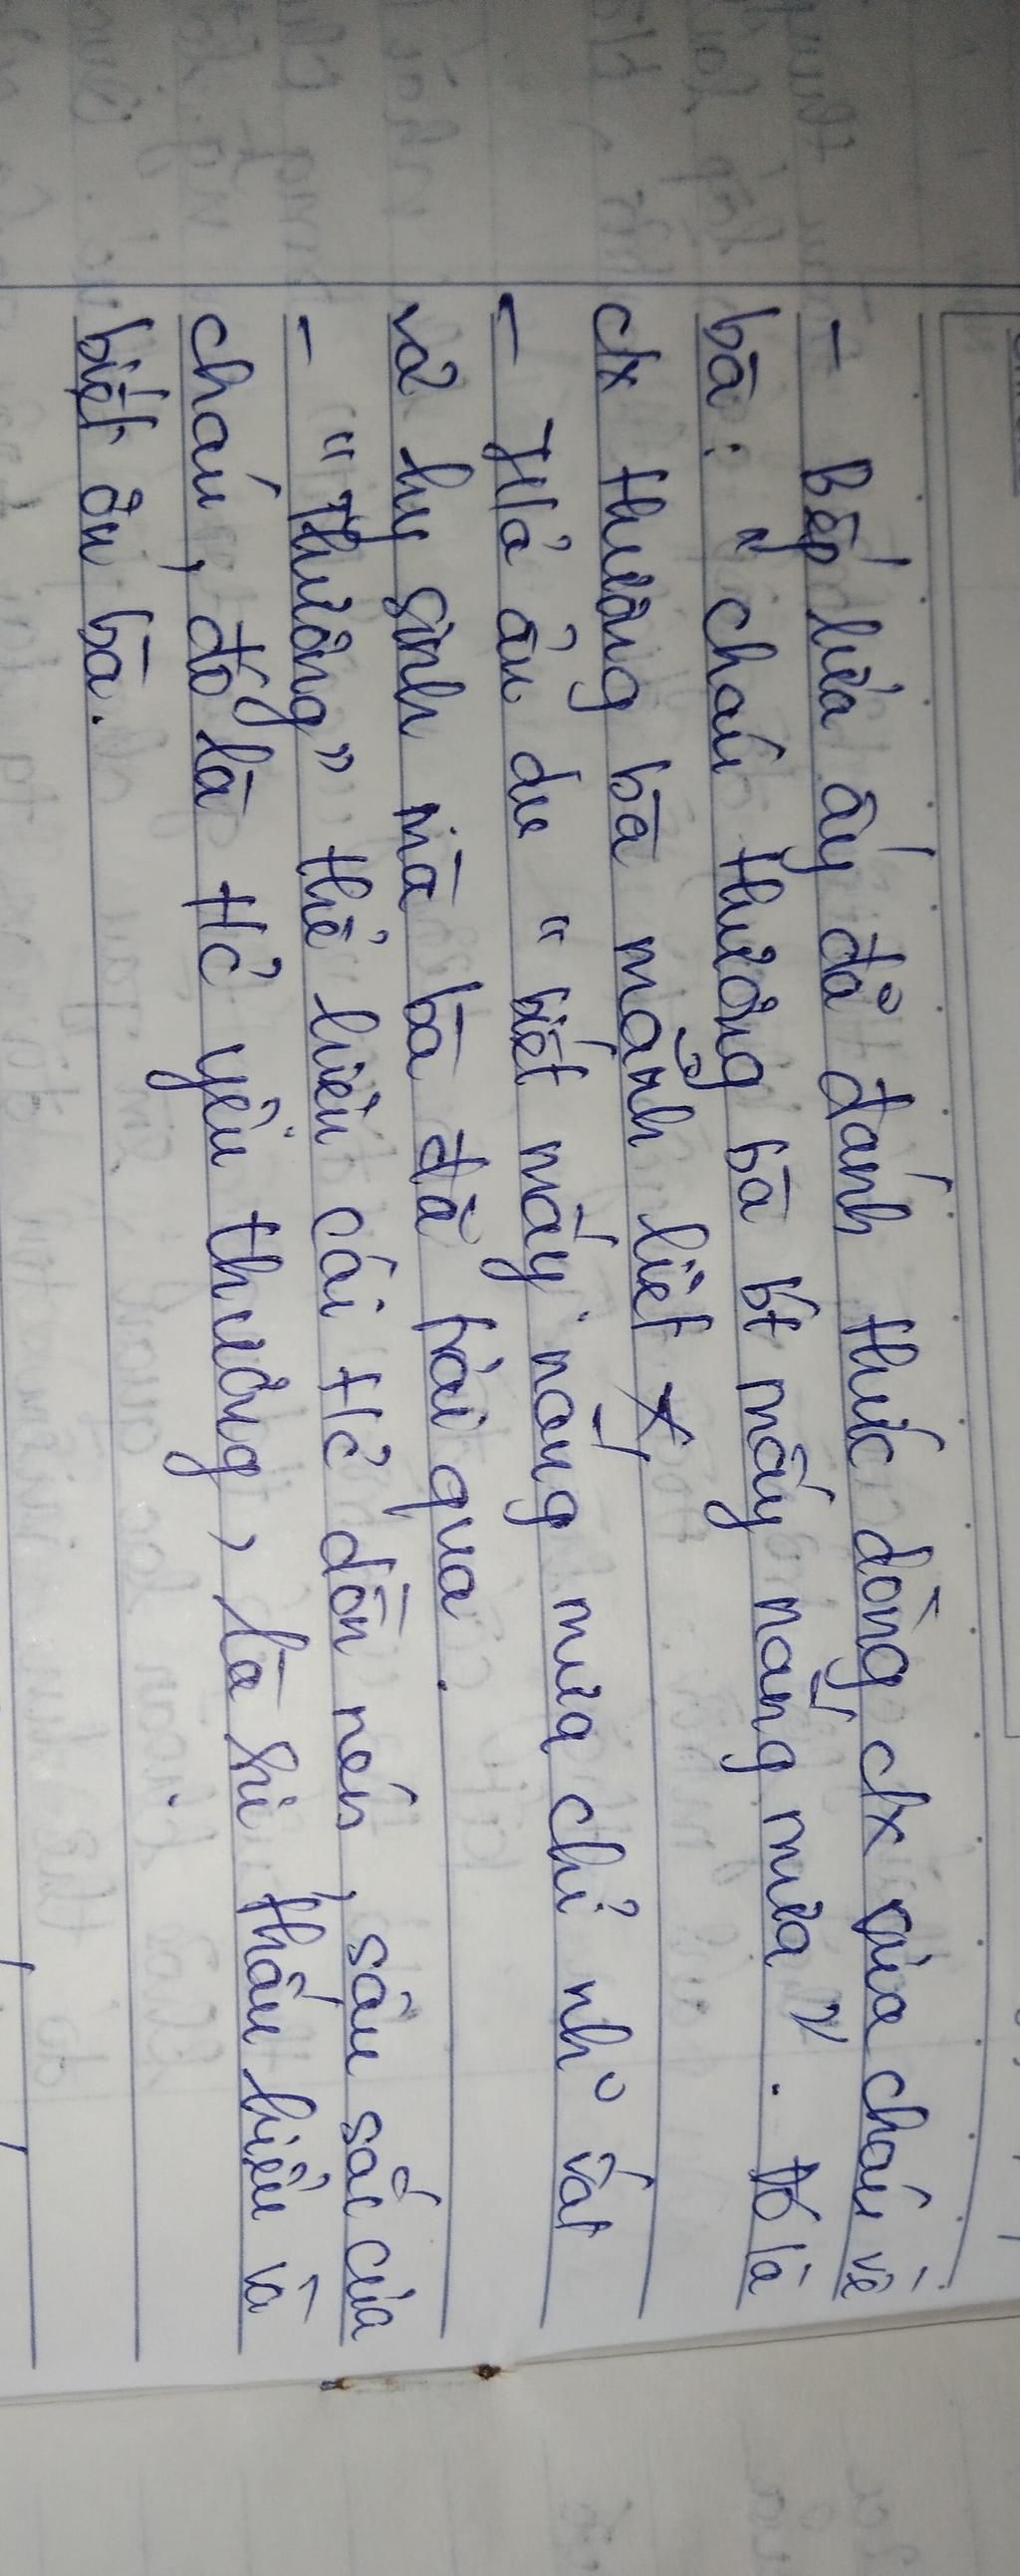 - Bếp lửa ấy đã đánh thức dòng clx của cháu về
bà: " cháu thương bà bt mấy nắng mưa". Đó là
clx thương bà mãnh liệt
- H/ả ẩn dụ " biết mấy nắng mưa chỉ nh~ vất
vả hy sinh mà bà đã trải qua.
- " Thương" thể hiện cái t/c dồn nén, sâu sắc của
cháu, đó là t/c yêu thương, là sự thấu hiểu và
biết ơn bà.